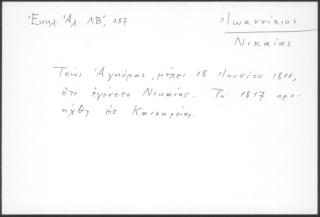 Ἐκκλ. Ἀλ. ΛΒ', 187
Ἰωαννίκιος
Νικαίας
Τέως Ἀγκύρας, μέχρι 18 Ἰουνίου 1811,
ὅτε ἐγένετο Νικαίας. Τῷ 1817 προ-
ήχθη εἰς Καισαρείας.